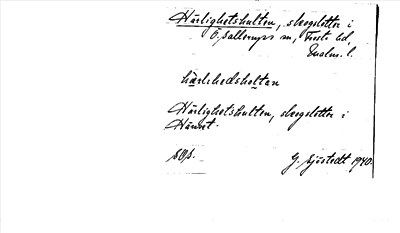 Härlighetshulten, skogslotter i
Ö. Sallerups sn, Frosta hd,
Malm. l.
härlihedsholtan
Härlighetshulten, skogslotter i
Hänset.
sgs.
G. Sjöstedt 1940.